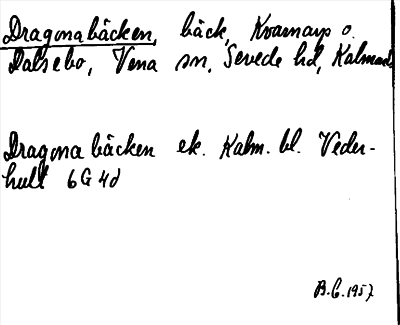 Dragonabäcken, bäck, Kvarnarp o.
Dalsebo, Vena sn, Sevede hd, Kalmar l
Dragonabäcken ek. Kalm. bl. Veder-
hult 6G 4d
B.C. 1957